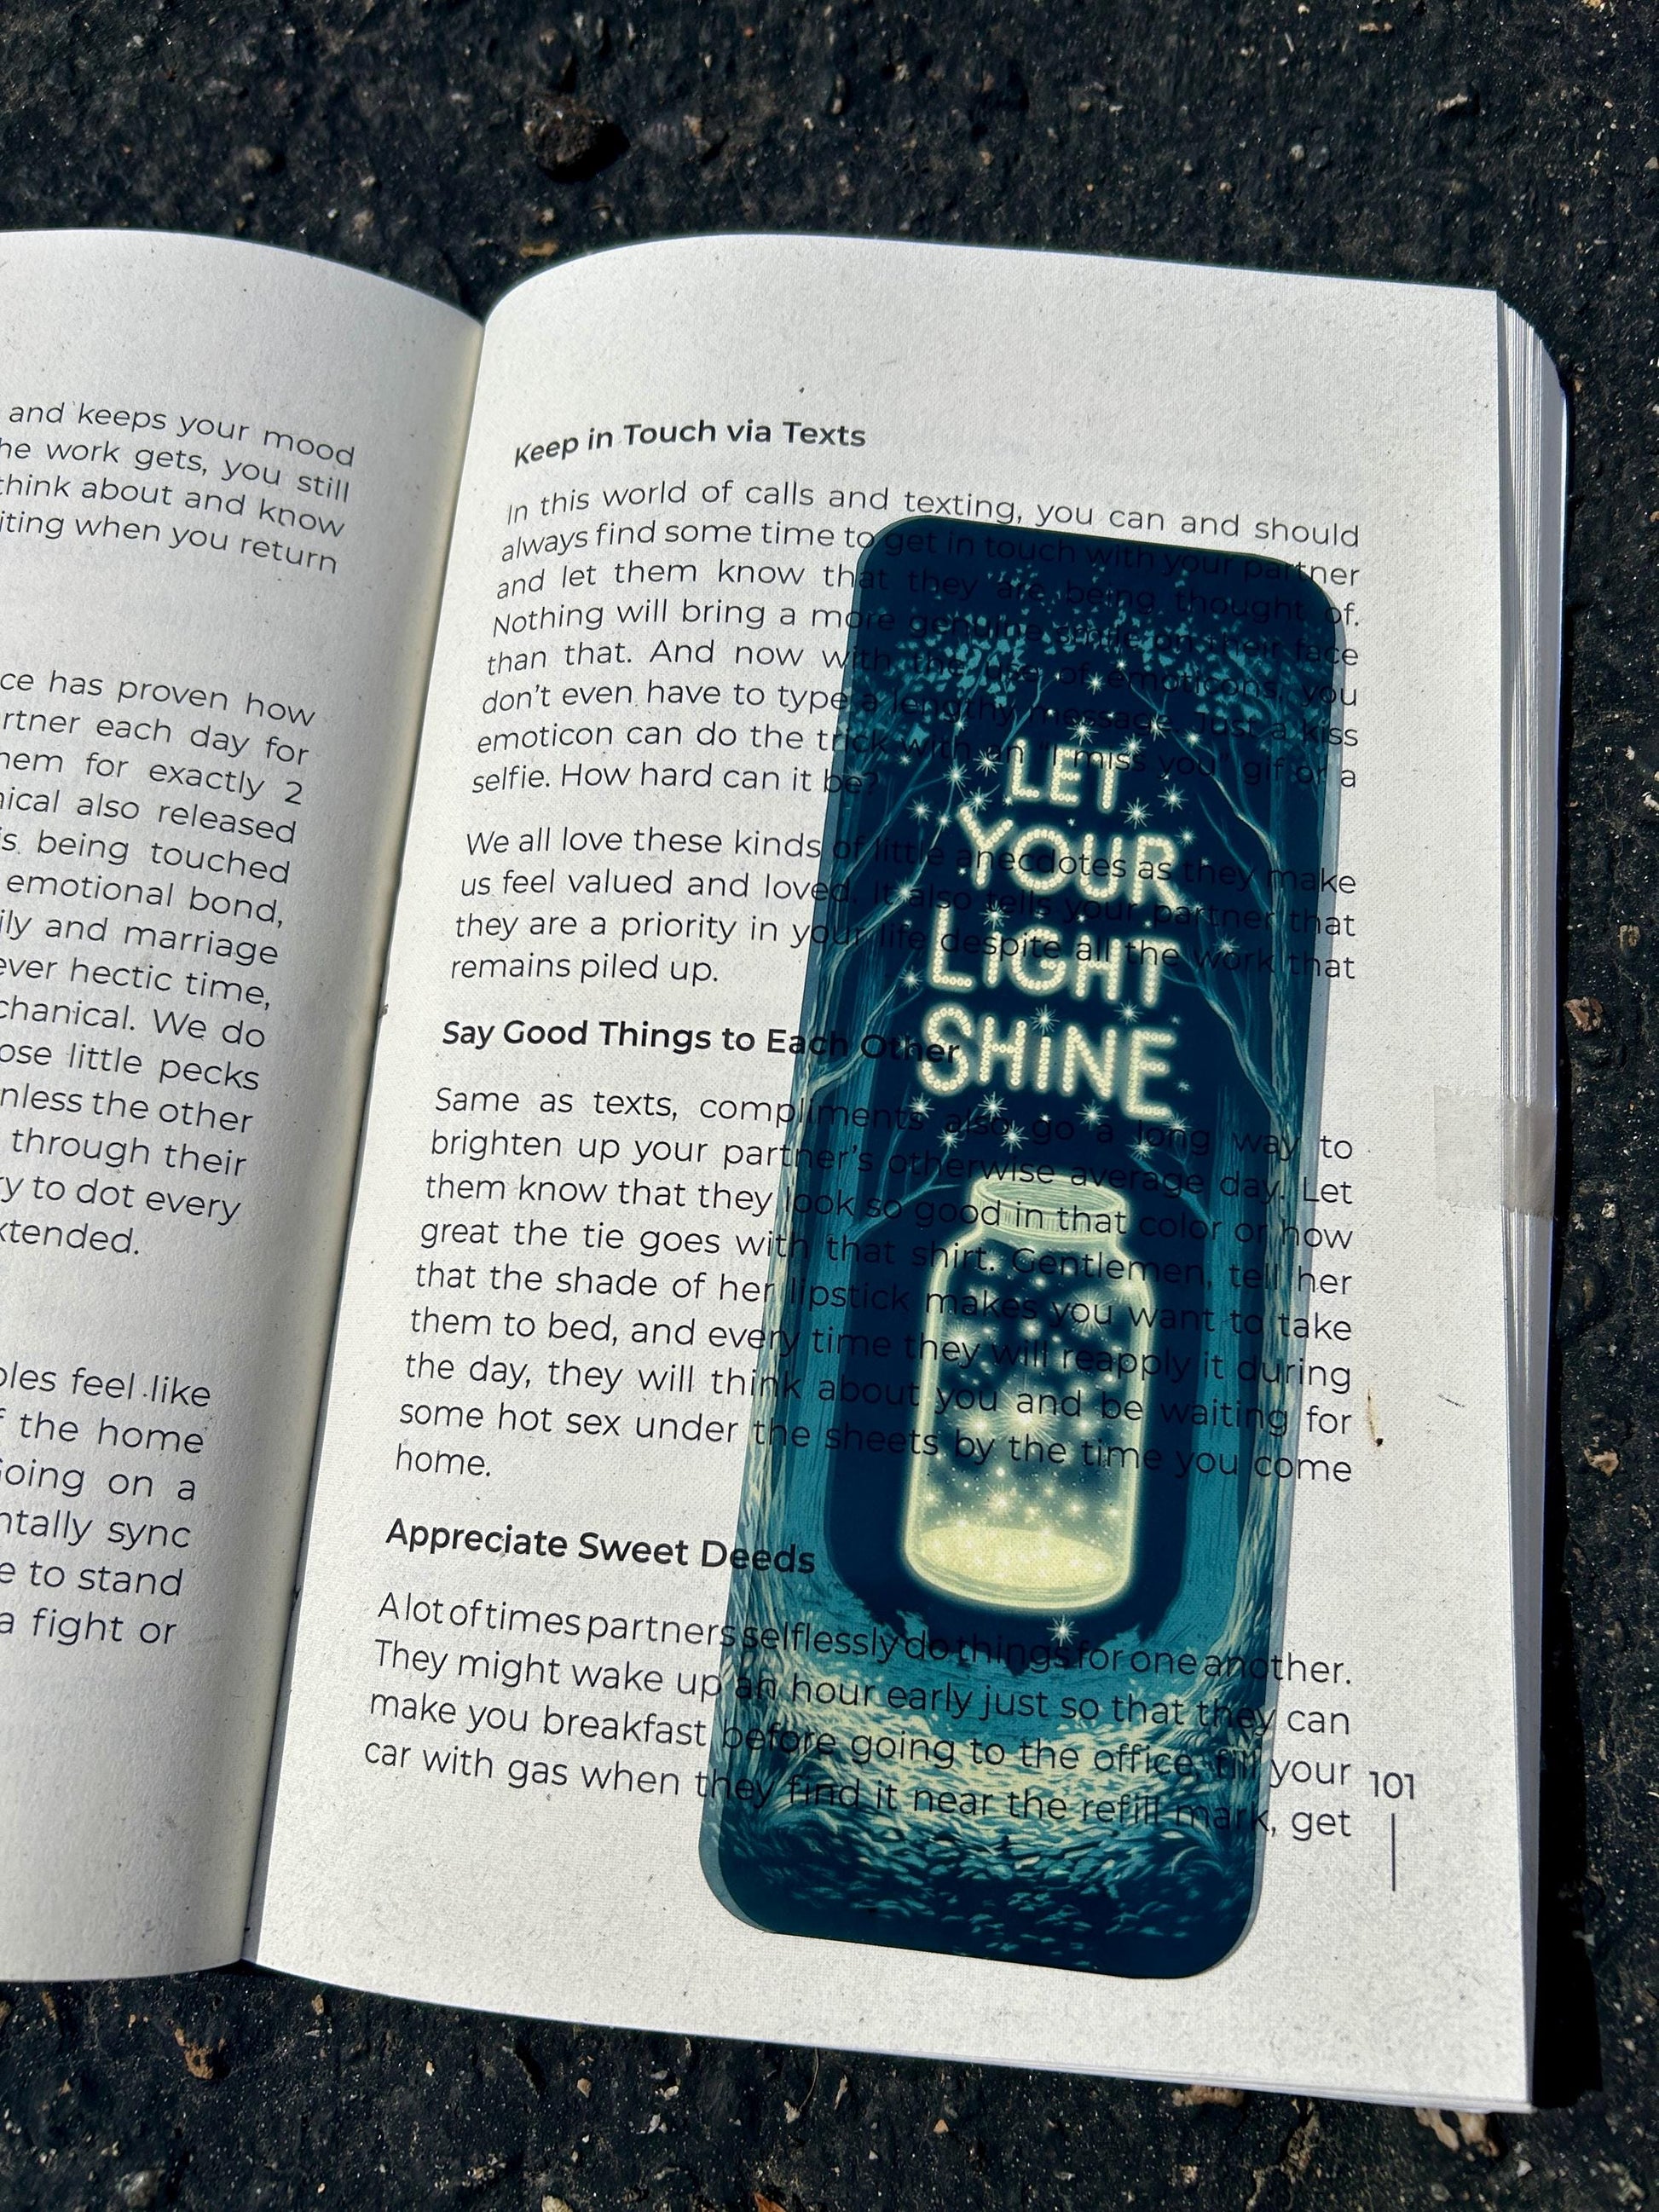 and keeps your mood
work gets, you still
think about and know
when you return
has proven how
each day for
for exactly 2
also released
being touched
emotional bond,
and marriage
hectic time,
We do
little pecks
the other
through their
to dot every
feel like
the home
on a
sync
to stand
a fight or
Keep in Touch via Texts
In this world of calls and texting, you can and should
always find some time to get in touch with your partner
and let them know that they are being thought of.
Nothing will bring a more genuine smile on their face
than that. And now with the use of emoticons, you
don't even have to type a lengthy message. Just a kiss
emoticon can do the trick with an "I miss you" gif or a
selfie. How hard can it be?
We all love these kinds of little anecdotes as they make
us feel valued and loved. It also tells your partner that
they are a priority in your life despite all the work that
remains piled up.
Say Good Things to Each Other
Same as texts, compliments also go a long way to
brighten up your partner's otherwise average day. Let
them know that they look so good in that color or how
great the tie goes with that shirt. Gentlemen, tell her
that the shade of her lipstick makes you want to take
them to bed, and every time they will reapply it during
the day, they will think about you and be waiting for
some hot sex under the sheets by the time you come
home.
Appreciate Sweet Deeds
A lot of times partners selflessly do things for one another.
They might wake up an hour early just so that they can
make you breakfast before going to the office, fill your
car with gas when they find it near the refill mark, get
101
LET
YOUR
LIGHT
SHINE